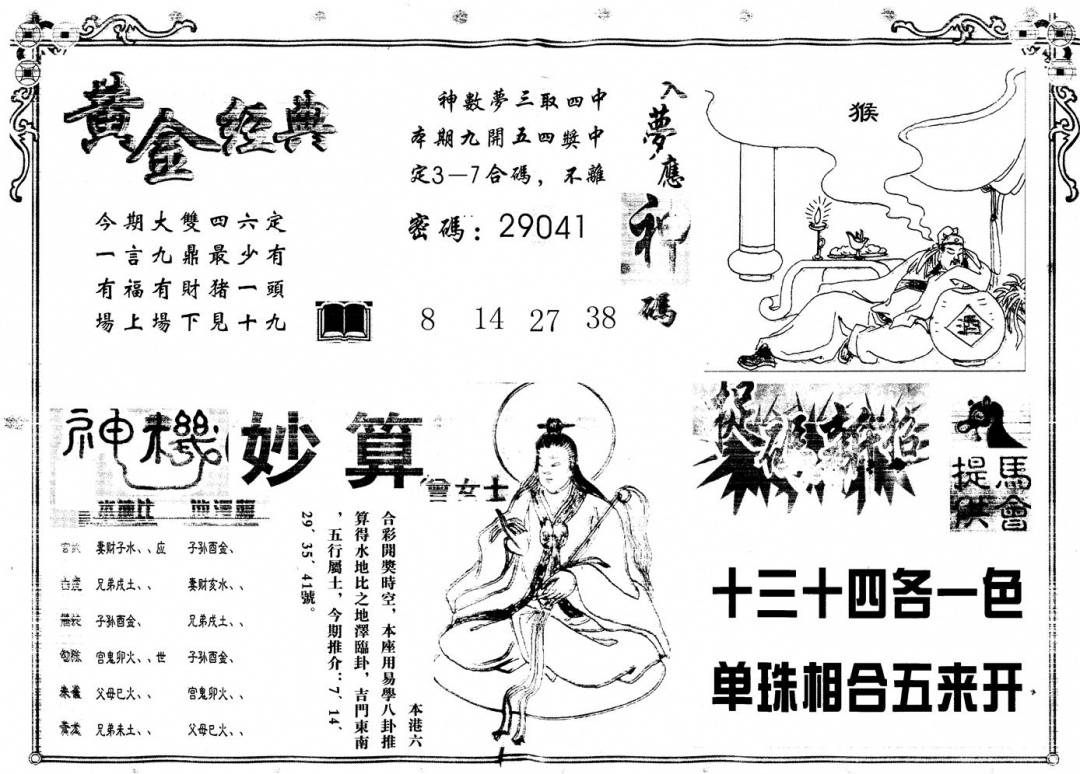 黄金經典
今期大雙四六定
一言九鼎最少有
有福有財猪一頭
場上場下見十九
神數夢三取四中
本期九開五四獎中
定3—7合碼，不離
密碼：29041
8 14 27 38
入夢應神碼
猴
酒
神機妙算
曾女士
水地比 地澤臨
妻财子水、、应 子孙酉金、
白虎 兄弟戌土、、 妻财亥水、、
子孙酉金、 兄弟戌土、、
勾陈 宫鬼卯火、、世 子孙酉金、
朱雀 父母巳火、、 宫鬼卯火、、
青龙 兄弟未土、、 父母巳火、、
本港六
合彩開獎時空，本座用易學八卦推
算得水地比之地澤臨卦，吉門東南
，五行屬土，今期推介：7′14、
29′35′41號。
馬會
提供
十三十四各一色
单珠相合五来开